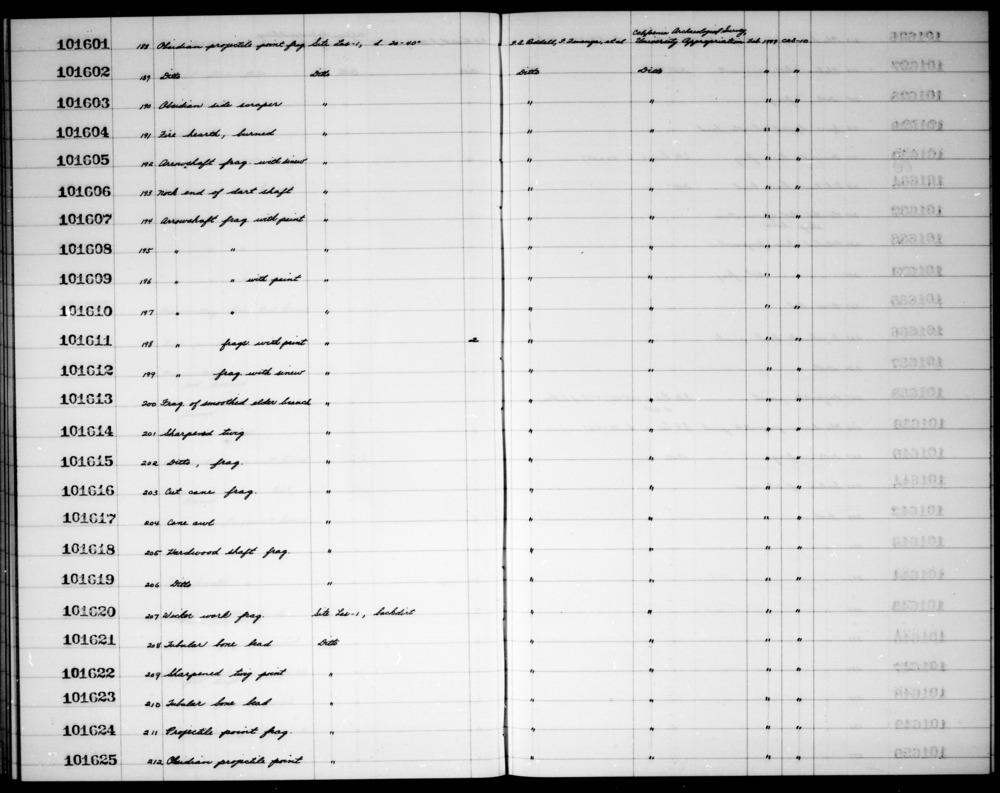 California Archaeological Survey,
101601 188 Obsidian projectile point frag Site Las-1, d. 20-40" F.A. Riddell, et al University Appropriation Feb 1949 CAS-10
101602 189 Ditto Ditto Ditto Ditto " "
101603 190 Obsidian side scraper " " " " "
101604 191 Fire hearth, burned " " " " "
101605 192 Arrowshaft frag. with sinew " " " " "
101606 193 Nock end of dart shaft " " " " "
101607 194 Arrowshaft frag with paint " " " " "
101608 195 " " " " " " "
101609 196 " " with paint " " " " "
101610 197 " " " " " " "
101611 198 " frags with paint " 2 " " " "
101612 199 " frag. with sinew " " " " "
101613 200 Frag. of smoothed elder branch " " " " "
101614 201 Sharpened twig " " " " "
101615 202 Ditto, frag. " " " " "
101616 203 Cut cane frag. " " " " "
101617 204 Cane awl " " " " "
101618 205 Hardwood shaft frag. " " " " "
101619 206 Ditto " " " " "
101620 207 Wicker work frag. Site Las-1, backdirt " " " "
101621 208 Tubular bone bead Ditto " " " "
101622 209 Sharpened twig point " " " " "
101623 210 Tubular bone bead " " " " "
101624 211 Projectile point frag. " " " " "
101625 212 Obsidian projectile point " " " " "